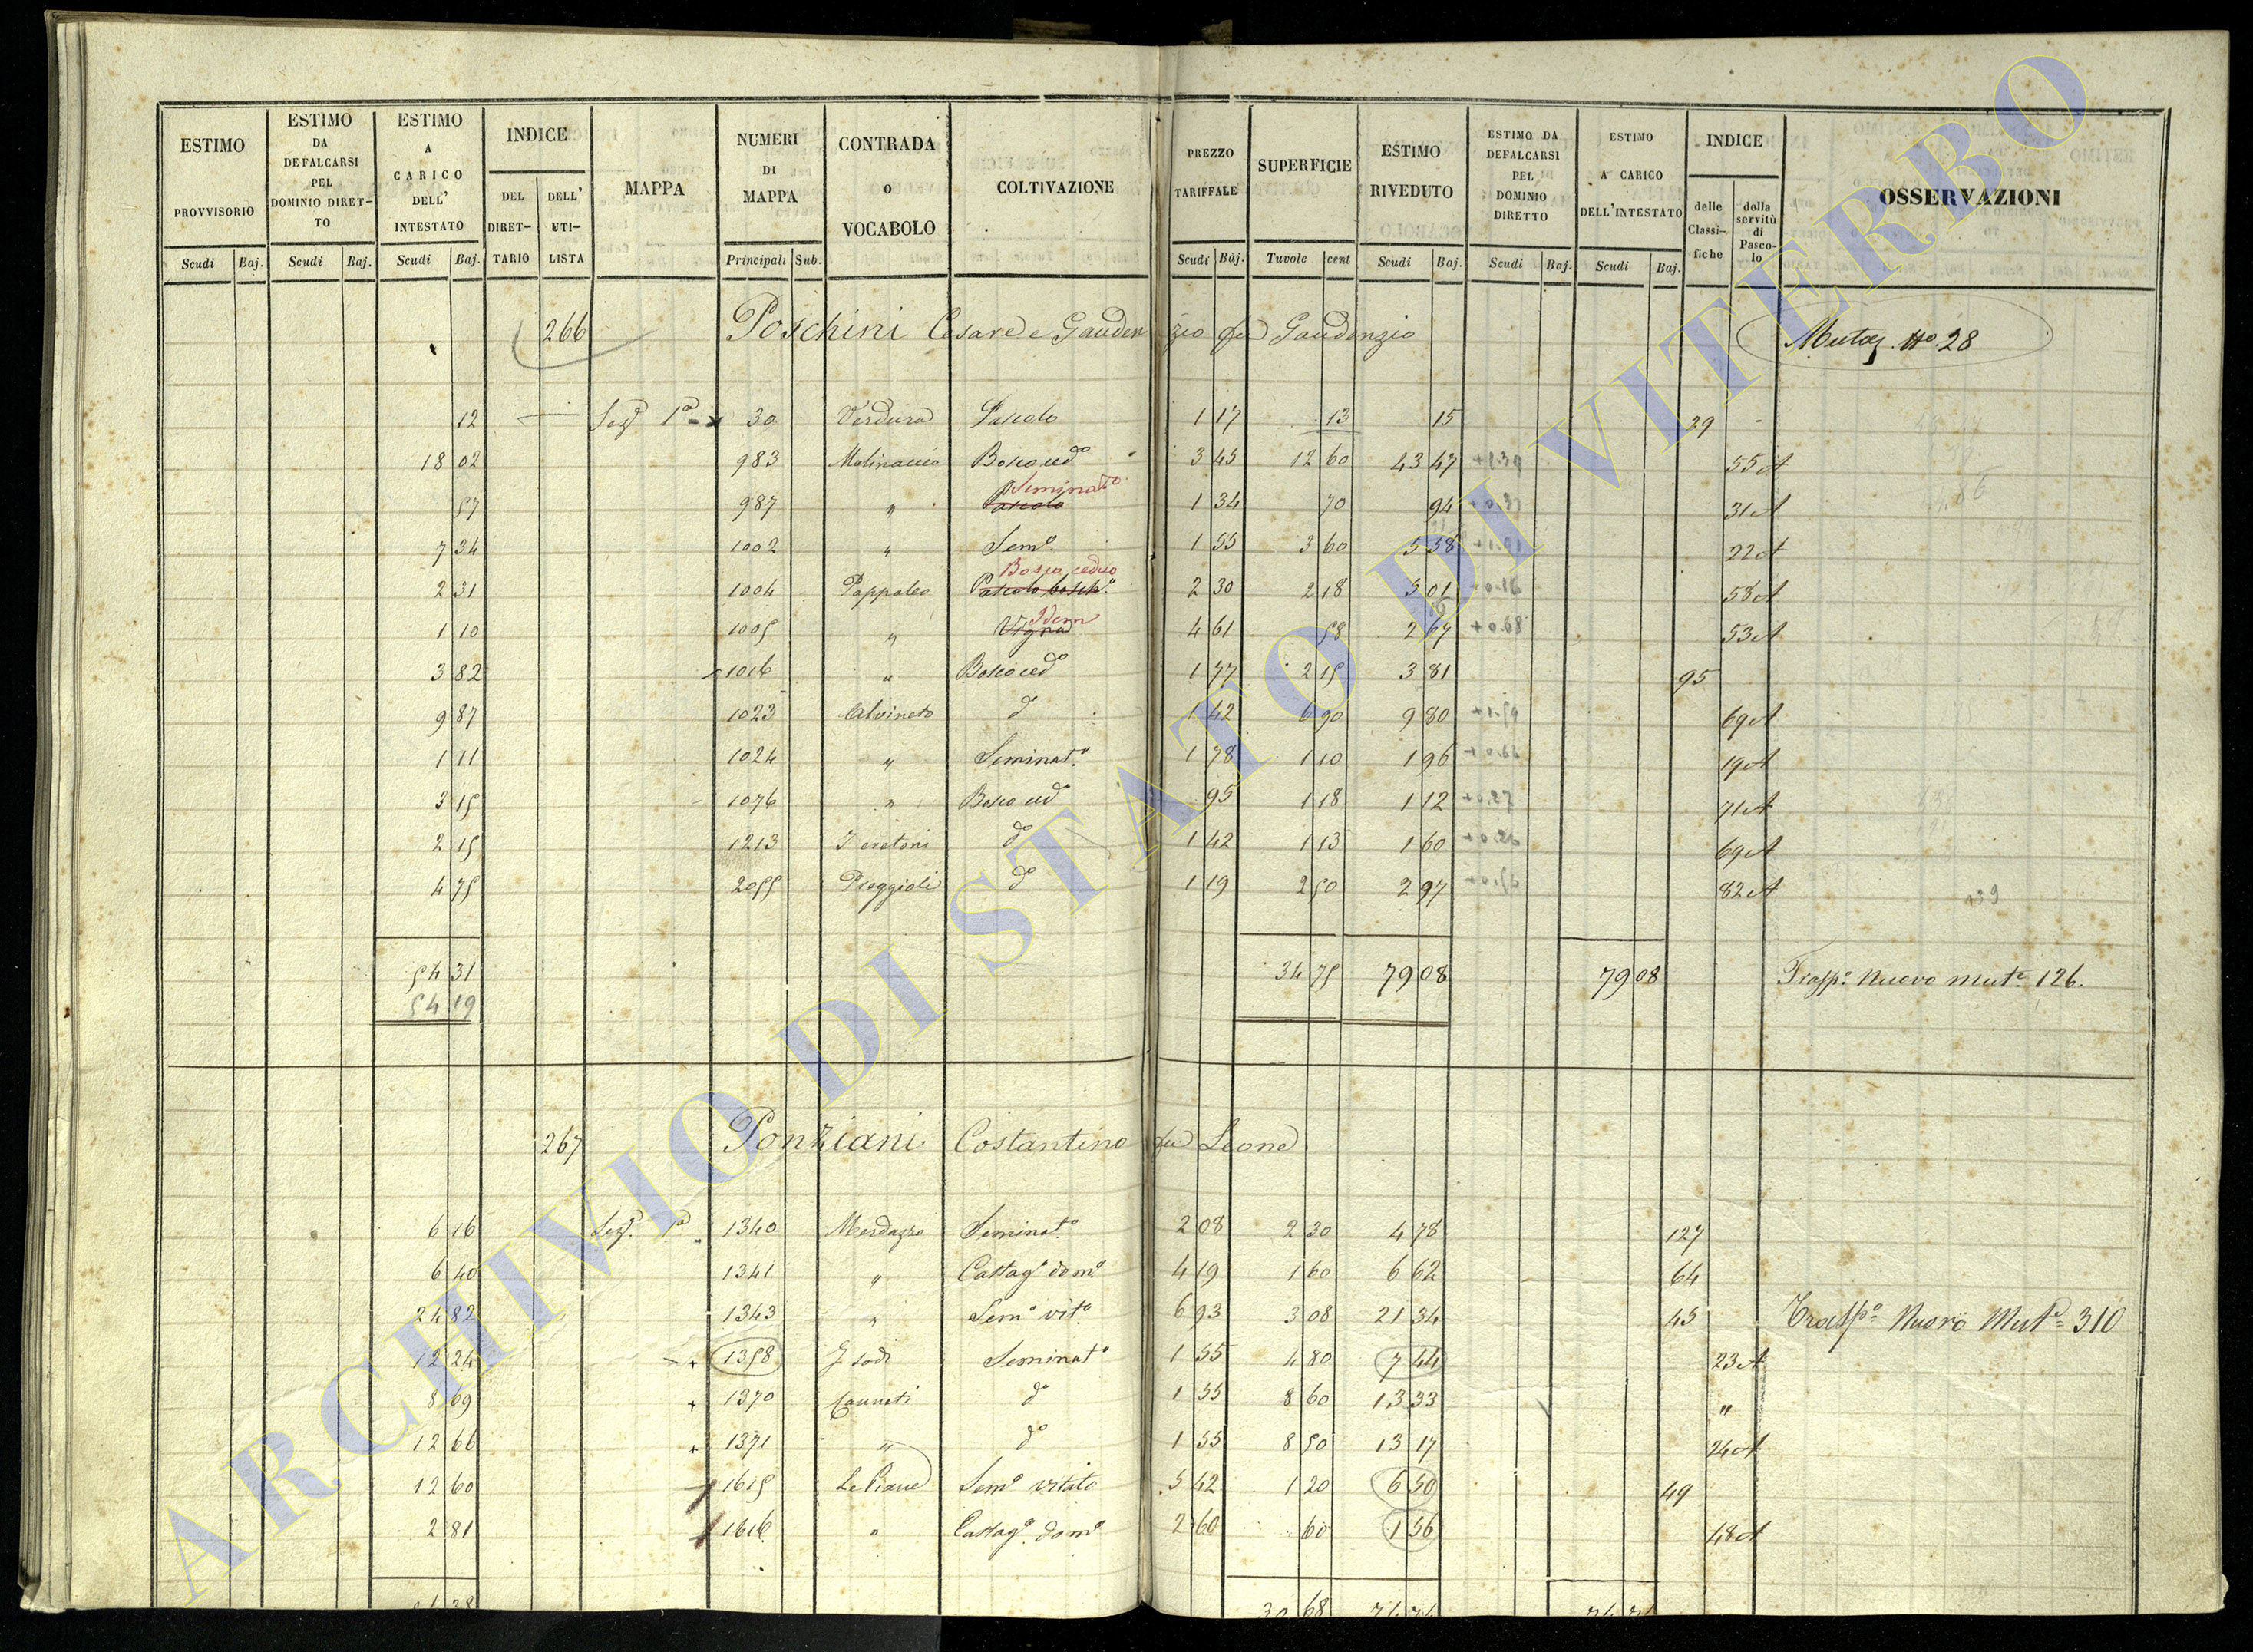 ESTIMO PROVVISORIO Scudi Baj.
ESTIMO DA DEFALCARSI PEL DOMINIO DIRET-TO Scudi Baj.
ESTIMO A CARICO DELL' INTESTATO Scudi Baj.
INDICE DEL DIRET-TARIO DELL' UTI-LISTA
MAPPA
NUMERI DI MAPPA Principali Sub.
CONTRADA o VOCABOLO
COLTIVAZIONE
PREZZO TARIFFALE Scudi Baj.
SUPERFICIE Tavole cent
ESTIMO RIVEDUTO Scudi Baj.
ESTIMO DA DEFALCARSI PEL DOMINIO DIRETTO Scudi Baj.
ESTIMO A CARICO DELL'INTESTATO Scudi Baj.
INDICE delle Classi-fiche della servitù di Pasco-lo
OSSERVAZIONI
266 Poschini Cesare e Gaudenzio fu Gaudenzio Mutaz. No. 28
12 Sez. 1a 30 Verdura Pascolo 1 17 13 15 29
18 02 983 Molinaccio Bosco cedo 3 45 12 60 43 47 55 A
57 987 " Pascolo Seminato 1 34 70 94 31 A
7 34 1002 " Semo 1 55 3 60 5 58 22 A
2 31 1004 Pappaleo Pascolo bosch.o Bosco ceduo 2 30 2 18 5 01 58 A
1 10 1005 " Vigna Idem 4 61 58 2 67 53 A
3 82 1016 " Bosco cedo 1 77 2 15 3 81 95
9 87 1023 Alvineto do 1 42 6 90 9 80 69 A
1 11 1024 " Seminat.o 1 78 1 10 1 96 19 A
3 15 1076 " Bosco cedo 95 1 18 1 12 71 A
2 15 1213 do 1 42 1 13 1 60 69 A
4 75 2055 Poggioli do 1 19 2 50 2 97 82 A
139
54 31 34 75 79 08 79 08 Trasp.o Nuovo mut.e 126.
54 19
267 Ponziani Costantino fu Leone
6 16 Sez. 1a 1340 Seminat.o 2 08 2 30 4 78 127
6 40 1341 " Castag.o dom.o 4 19 1 60 6 62 64
24 82 1343 " Sem.o vit.o 6 93 3 08 21 34 45 Trasp.o Nuovo Mut.e 310
12 24 1358 Seminat.o 1 55 4 80 7 44 23 A
8 69 1370 do 1 55 8 60 13 33 "
12 66 1371 " do 1 55 8 50 13 17 24 A
12 60 1615 Le Piane Sem.o vitato 5 42 1 20 6 50 49
2 81 1616 " Castag.o dom.o 2 60 60 1 56 48 A
30 68
ARCHIVIO DI STATO DI VITERBO